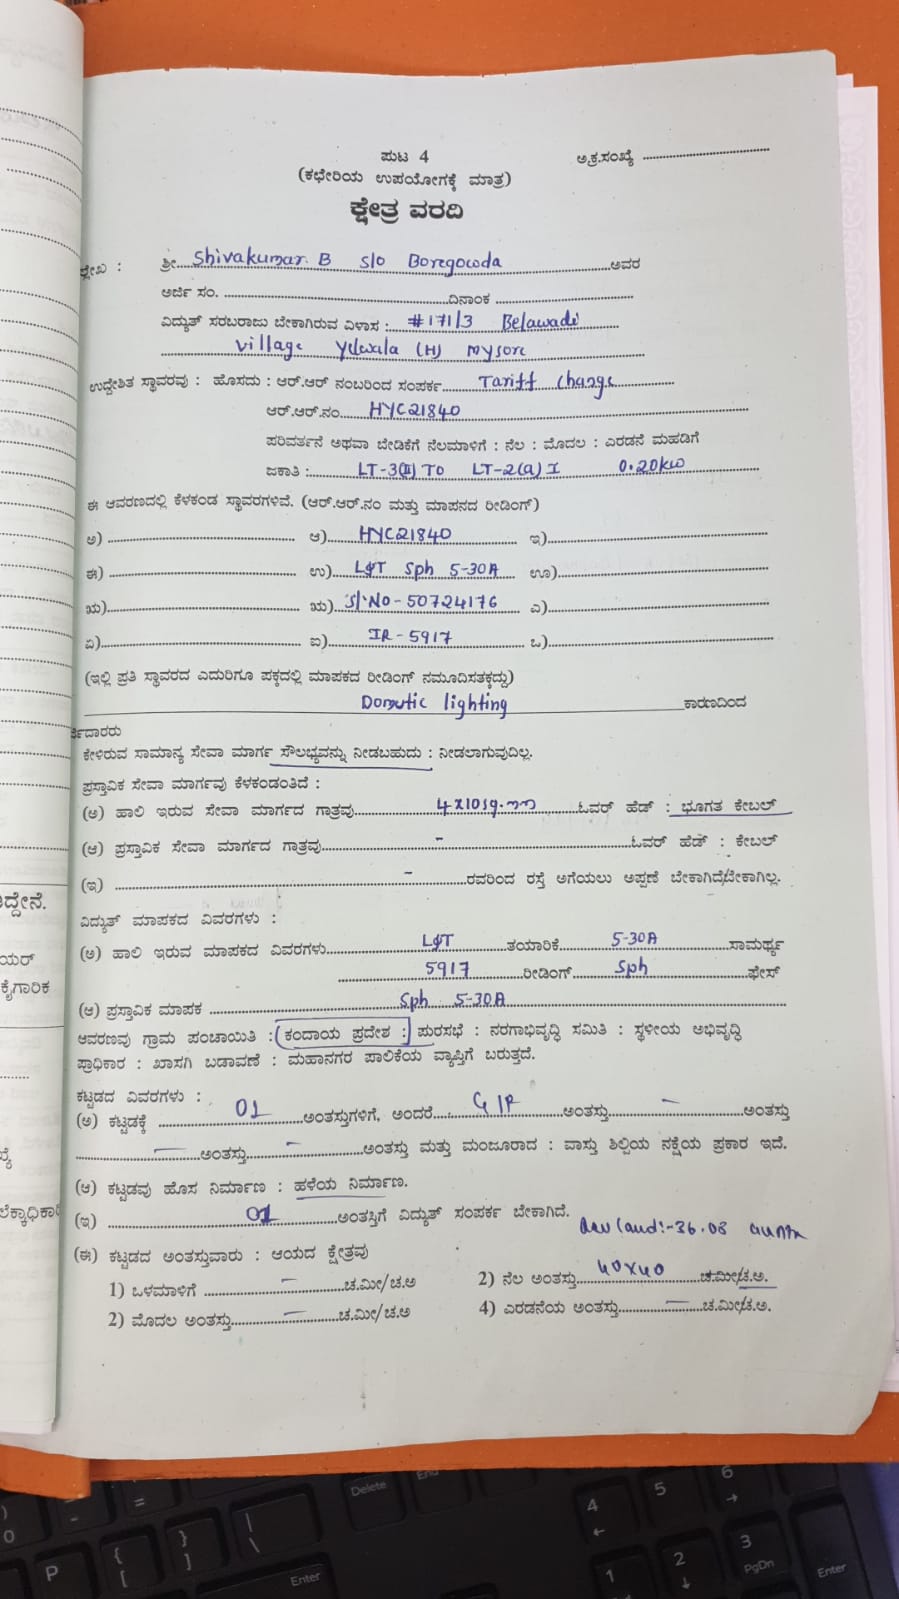 ಪುಟ 4
ಅ.ಕ್ರ.ಸಂಖ್ಯೆ ........................
(ಕಛೇರಿಯ ಉಪಯೋಗಕ್ಕೆ ಮಾತ್ರ)
ಕ್ಷೇತ್ರ ವರದಿ
ಶ್ರೀ.... Shivakumar. B S/o Boregowda ....ಅವರ
ಅರ್ಜಿ ಸಂ. ........................ದಿನಾಂಕ ........................
ವಿದ್ಯುತ್ ಸರಬರಾಜು ಬೇಕಾಗಿರುವ ವಿಳಾಸ : #171/3 Belawadi
village Yelwala (H) Mysore
ಉದ್ದೇಶಿತ ಸ್ಥಾವರವು : ಹೊಸದು : ಆರ್.ಆರ್ ನಂಬರಿಂದ ಸಂಪರ್ಕ.... Tariff Change
ಆರ್.ಆರ್.ನಂ.... HYC21840
ಪರಿವರ್ತನೆ ಅಥವಾ ಬೇಡಿಕೆಗೆ ನೆಲಮಾಳಿಗೆ : ನೆಲ : ಮೊದಲ : ಎರಡನೆ ಮಹಡಿಗೆ
ಜಕಾತಿ : LT-3(II) TO LT-2(a) I 0.20kw
ಈ ಆವರಣದಲ್ಲಿ ಕೆಳಕಂಡ ಸ್ಥಾವರಗಳಿವೆ. (ಆರ್.ಆರ್.ನಂ ಮತ್ತು ಮಾಪನದ ರೀಡಿಂಗ್)
ಅ)............ ಆ).... HYC21840 .... ಇ)............
ಈ)............ ಉ).... L&T Sph 5-30A .... ಊ)............
ಋ)............ ಋ).... Sl.No - 50724176 .... ಎ)............
ಏ)............ ಐ).... IR - 5917 .... ಒ)............
(ಇಲ್ಲಿ ಪ್ರತಿ ಸ್ಥಾವರದ ಎದುರಿಗೂ ಪಕ್ಕದಲ್ಲಿ ಮಾಪಕದ ರೀಡಿಂಗ್ ನಮೂದಿಸತಕ್ಕದ್ದು)
Domutic lighting ಕಾರಣದಿಂದ
ದಾರರು
ಕೇಳಿರುವ ಸಾಮಾನ್ಯ ಸೇವಾ ಮಾರ್ಗ ಸೌಲಭ್ಯವನ್ನು ನೀಡಬಹುದು : ನೀಡಲಾಗುವುದಿಲ್ಲ.
ಪ್ರಸ್ತಾವಿಕ ಸೇವಾ ಮಾರ್ಗವು ಕೆಳಕಂಡಂತಿದೆ :
(ಅ) ಹಾಲಿ ಇರುವ ಸೇವಾ ಮಾರ್ಗದ ಗಾತ್ರವು.... 4x10sq.mm ....ಓವರ್ ಹೆಡ್ : ಭೂಗತ ಕೇಬಲ್
(ಆ) ಪ್ರಸ್ತಾವಿಕ ಸೇವಾ ಮಾರ್ಗದ ಗಾತ್ರವು.... - ....ಓವರ್ ಹೆಡ್ : ಕೇಬಲ್
(ಇ) .... - ....ರವರಿಂದ ರಸ್ತೆ ಅಗೆಯಲು ಅಪ್ಪಣೆ ಬೇಕಾಗಿದೆ/ಬೇಕಾಗಿಲ್ಲ.
ವಿದ್ಯುತ್ ಮಾಪಕದ ವಿವರಗಳು :
(ಅ) ಹಾಲಿ ಇರುವ ಮಾಪಕದ ವಿವರಗಳು.... L&T ....ತಯಾರಿಕೆ.... 5-30A ....ಸಾಮರ್ಥ್ಯ
5917 ....ರೀಡಿಂಗ್.... Sph ....ಫೇಸ್
(ಆ) ಪ್ರಸ್ತಾವಿಕ ಮಾಪಕ .... Sph 5-30A
ಆವರಣವು ಗ್ರಾಮ ಪಂಚಾಯಿತಿ : ಕಂದಾಯ ಪ್ರದೇಶ : ಪುರಸಭೆ : ನರಗಾಭಿವೃದ್ಧಿ ಸಮಿತಿ : ಸ್ಥಳೀಯ ಅಭಿವೃದ್ಧಿ
ಪ್ರಾಧಿಕಾರ : ಖಾಸಗಿ ಬಡಾವಣೆ : ಮಹಾನಗರ ಪಾಲಿಕೆಯ ವ್ಯಾಪ್ತಿಗೆ ಬರುತ್ತದೆ.
ಕಟ್ಟಡದ ವಿವರಗಳು :
(ಅ) ಕಟ್ಟಡಕ್ಕೆ .... 01 ....ಅಂತಸ್ತುಗಳಿಗೆ, ಅಂದರೆ.... G/F ....ಅಂತಸ್ತು.... - ....ಅಂತಸ್ತು
.... - ....ಅಂತಸ್ತು.... - ....ಅಂತಸ್ತು ಮತ್ತು ಮಂಜೂರಾದ : ವಾಸ್ತು ಶಿಲ್ಪಿಯ ನಕ್ಷೆಯ ಪ್ರಕಾರ ಇದೆ.
(ಆ) ಕಟ್ಟಡವು ಹೊಸ ನಿರ್ಮಾಣ : ಹಳೆಯ ನಿರ್ಮಾಣ.
(ಇ) .... 01 ....ಅಂತಸ್ತಿಗೆ ವಿದ್ಯುತ್ ಸಂಪರ್ಕ ಬೇಕಾಗಿದೆ.
36.08
(ಈ) ಕಟ್ಟಡದ ಅಂತಸ್ತುವಾರು : ಆಯದ ಕ್ಷೇತ್ರವು
1) ಒಳಮಾಳಿಗೆ .... - ....ಚ.ಮೀ/ಚ.ಅ 2) ನೆಲ ಅಂತಸ್ತು.... 40x40 ....ಚ.ಮೀ/ಚ.ಅ.
2) ಮೊದಲ ಅಂತಸ್ತು.... - ....ಚ.ಮೀ/ಚ.ಅ 4) ಎರಡನೆಯ ಅಂತಸ್ತು.... - ....ಚ.ಮೀ/ಚ.ಅ.